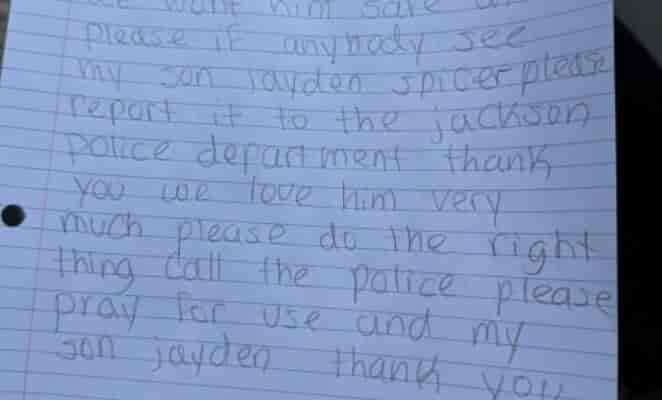 want him safe
please if anybody see
my son jayden spicer please
report it to the jackson
police department thank
you we love him very
much please do the right
thing call the police please
pray for use and my
son jayden thank you